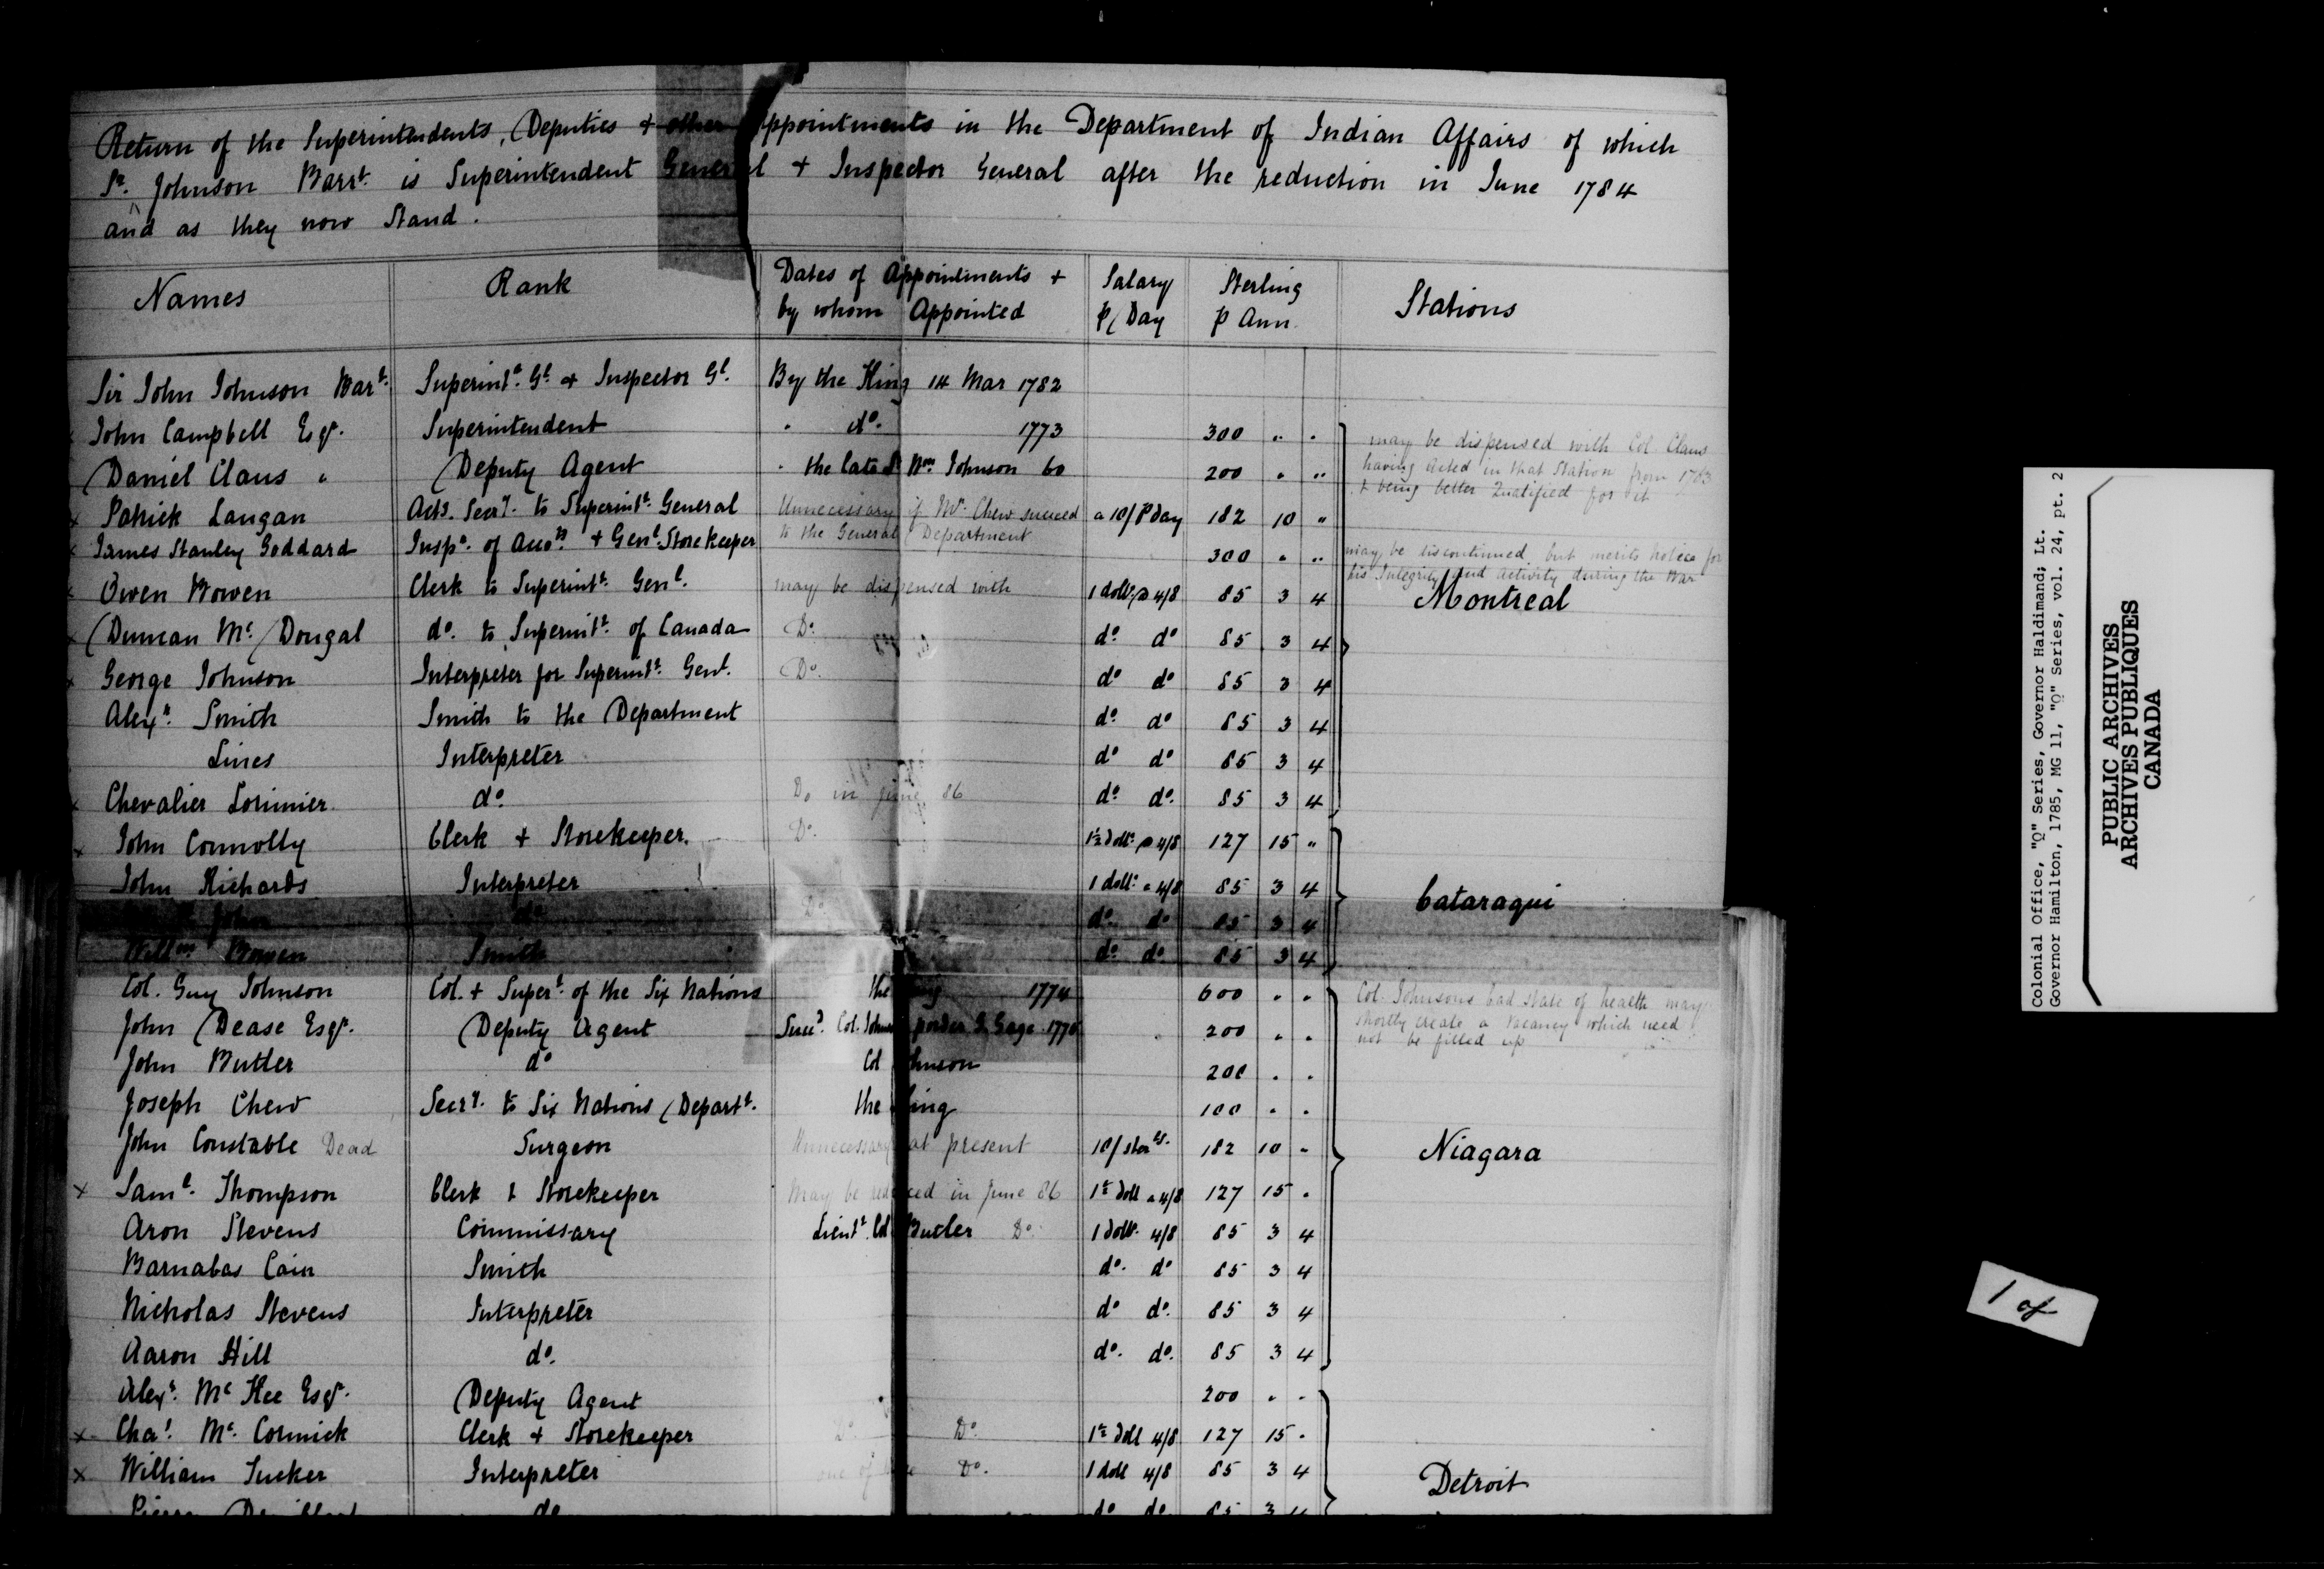 Return of the Superintendents, Deputies + other Appointments in the Department of Indian Affairs of which
Sr. Johnson Barrt. is Superintendent General + Inspector General after the reduction in June 1784
and as they now Stand.
Names Rank Dates of Appointments + by whom Appointed Salary p/ Day Sterling p Ann. Stations
Sir John Johnson Bart. Superintt. Gl. + Inspector Gl. By the King 14 Mar 1782
x John Campbell Esqr. Superintendent " do. 1773 300 " "
may be dispensed with Col Claus
Daniel Claus " Deputy Agent " the late Sr Wm. Johnson 60 200 " "
having acted in that Station from 1783
+ being better Qualified for it
x Patrick Langan Actg. Secry. to Superintt. General Unnecessary if Mr. Chew succeed a 10/ p day 182 10 "
to the General Department
x James Stanley Goddard Inspr. of Accots. + Genl. Storekeeper 300 " "
may be discontinued but merits notice for
his Integrity and activity during the War
x Owen Bowen Clerk to Superintt. Genl. may be dispensed with 1 dollr. @ 4/8 85 3 4
Montreal
x Duncan Mc. Dougal do. to Superintt. of Canada Do. do. do 85 3 4
x George Johnson Interpreter for Superintt. Genl. Do. do do 85 3 4
Alexr. Smith Smith to the Department do. do 85 3 4
Lines Interpreter do do 85 3 4
x Chevalier Lorimier. do. Do in June 86 do. do. 85 3 4
x John Connolly Clerk + Storekeeper. Do. 1½ dollr. @ 4/8 127 15 "
John Richards Interpreter 1 dollr. a 4/8 85 3 4
Cataraqui
John do. Do do. do 85 3 4
Willm Bowen Smith do. do 85 3 4
Col. Guy Johnson Col. + Supert. of the Six Nations the King 1774 600 " "
Col. Johnsons bad state of health may
John Dease Esqr. Deputy Agent Col. Johnson p order G. Gage 200 " "
shortly create a vacancy which need
not be filled up
John Butler do Col Johnson 200 " "
Joseph Chew Secry. to Six Nations Departt. the King 100 " "
John Constable Dead Surgeon Unnecessary at present 10/ 182 10 "
Niagara
x Saml. Thompson Clerk & Storekeeper May be reduced in June 86 1½ doll a 4/8 127 15 "
Aron Stevens Commissary Lieutt. Col. Butler Do. 1 dollr. 4/8 85 3 4
Barnabas Cain Smith do. do 85 3 4
Nicholas Stevens Interpreter do do. 85 3 4
Aaron Hill do. do. do. 85 3 4
Alexr. Mc Kee Esqr. Deputy Agent 200 " "
x Chas. Mc. Cormick Clerk + Storekeeper Do Do. 1½ doll 4/8 127 15 "
x William Tucker Interpreter Do. 1 doll 4/8 85 3 4
Detroit
Pierre do do do 85 3 4
Colonial Office, "Q" Series, Governor Haldimand; Lt.
Governor Hamilton, 1785, MG 11, "Q" Series, vol. 24, pt. 2
PUBLIC ARCHIVES
ARCHIVES PUBLIQUES
CANADA
1 of